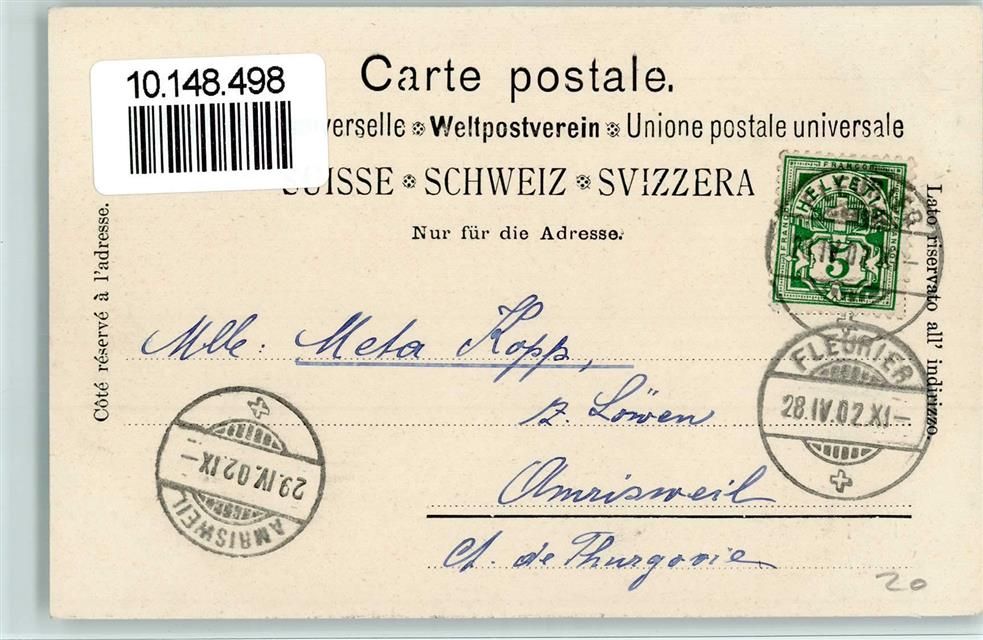 10.148.498
Carte postale.
verselle ❊ Weltpostverein ❊ Unione postale universale
SUISSE ❊ SCHWEIZ ❊ SVIZZERA
Nur für die Adresse.
Côté réservé à l'adresse.
Lato riservato all' indirizzo.
FRANCO
HELVETIA
5
Mlle: Meta Kopp,
z. Löwen
Amrisweil
Ct. de Thurgovie
FLEURIER
28.IV.02.XI–
29.IV.02.IX–
AMRISWEIL
20